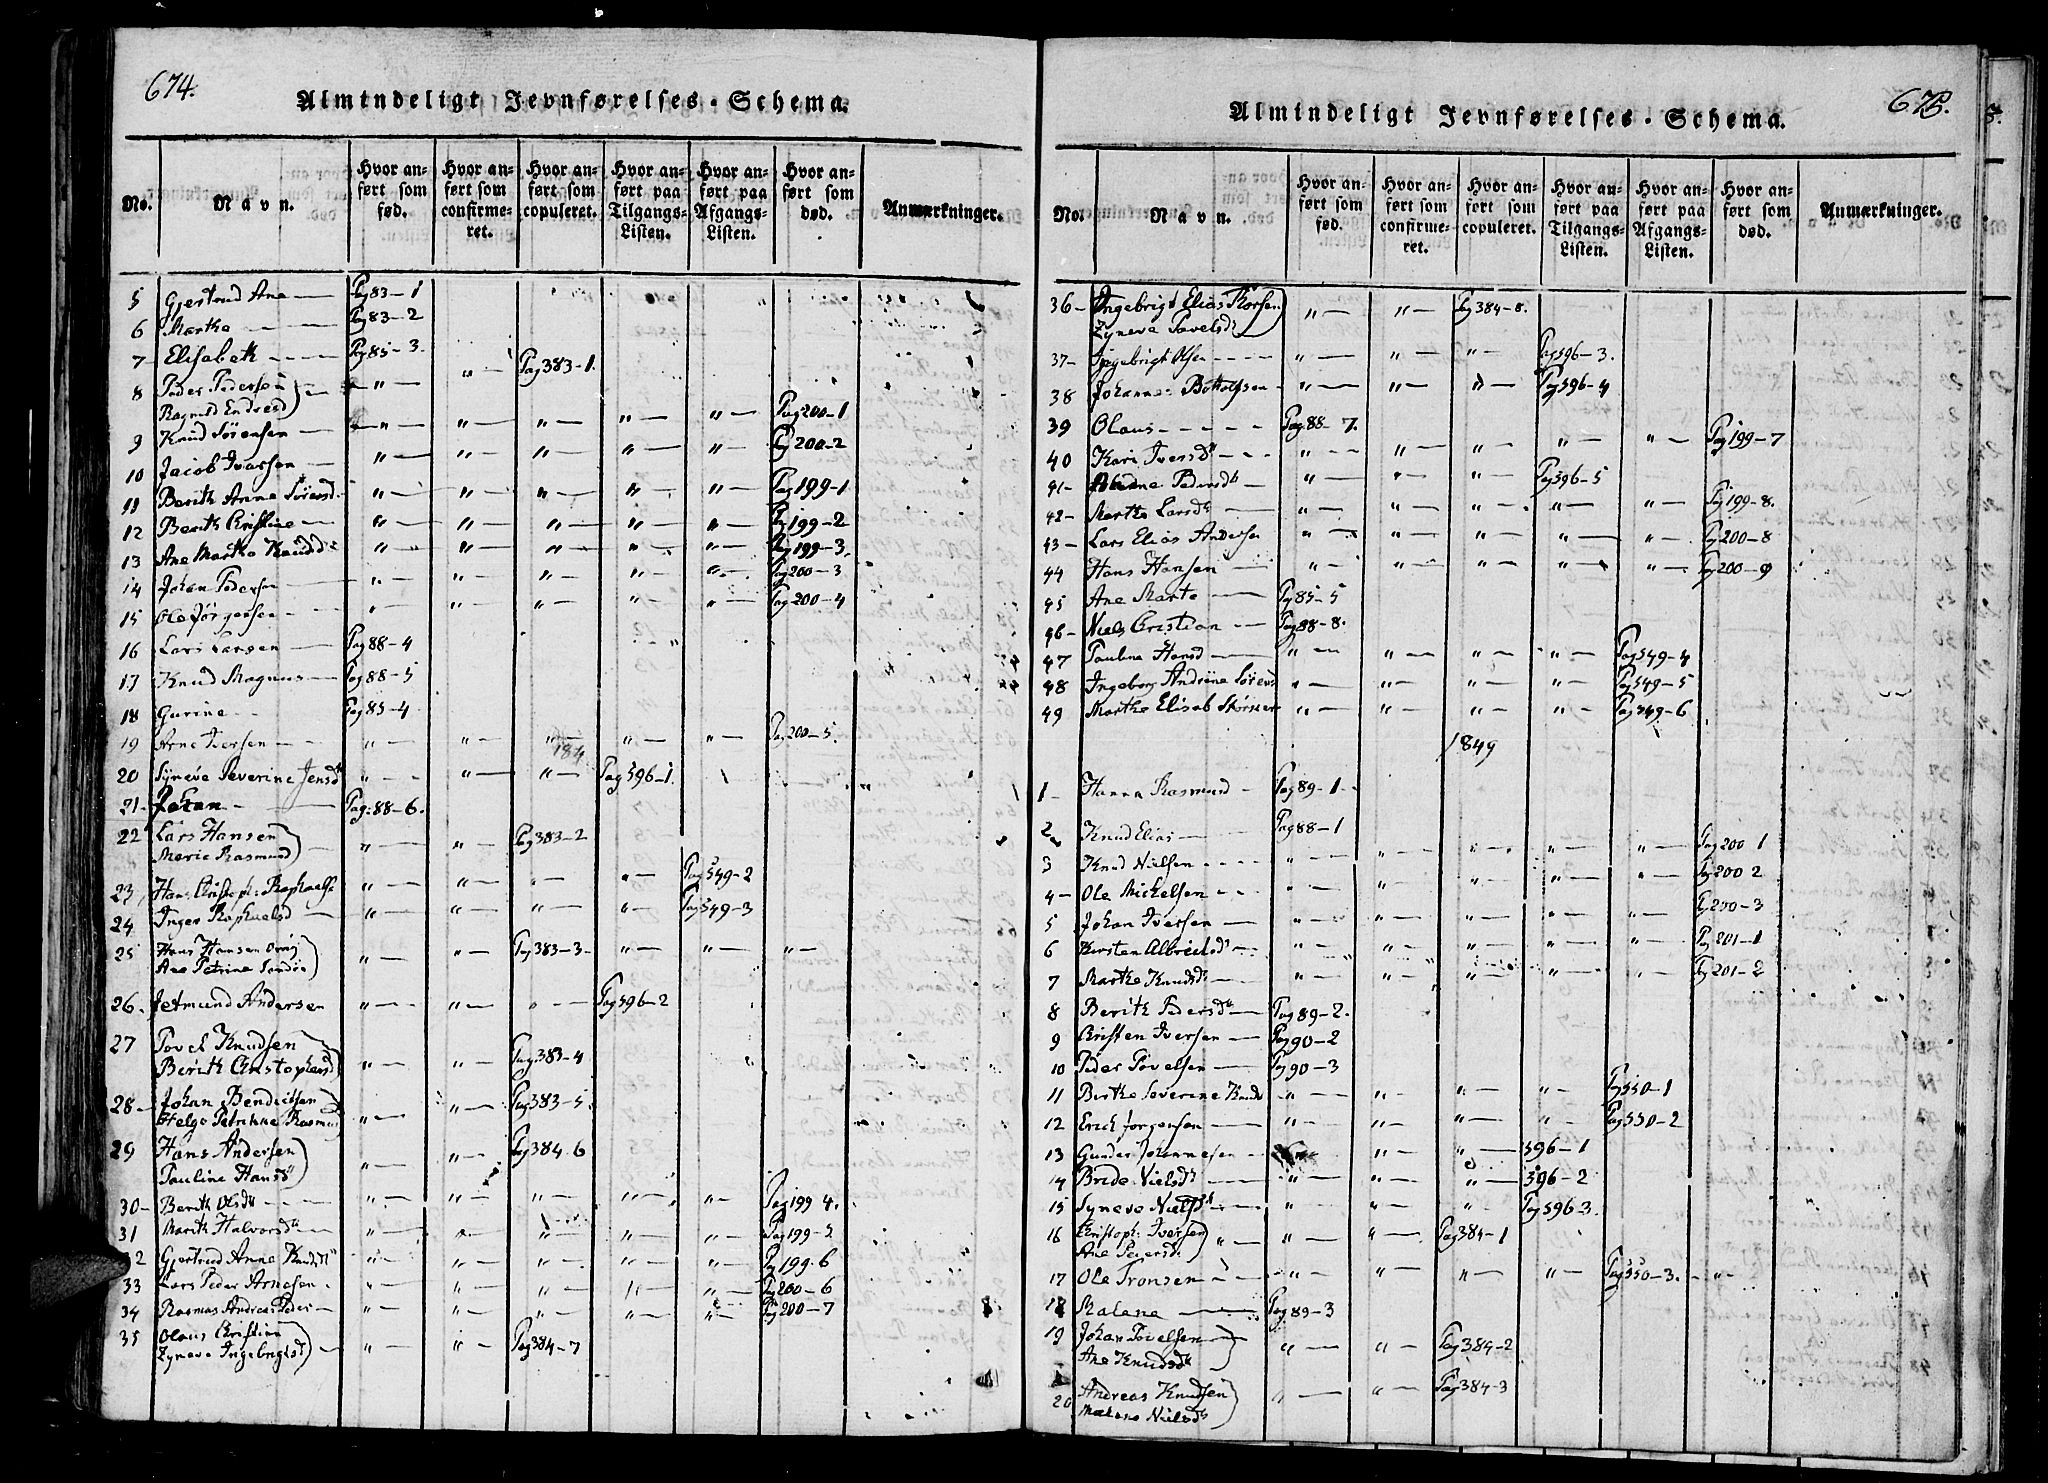 674.
Almindeligt Jevnførelses-Schema.
No.
Navn.
Hvor anført som fød.
Hvor anført som confirmeret.
Hvor anført som copuleret.
Hvor anført paa Tilgangs-Listen.
Hvor anført paa Afgangs-Listen.
Hvor anført som død.
Anmærkninger.
5 Gjertrud Ane — Pag 83-1
6 Marthe — Pag 83-2
7 Elisabeth — Pag 85-3.
8 Peder Pedersen " " Pag 383-1.
Ragnild Endresd
9 Knud Sørensen " " " " " Pag 200-1
10 Jacob Ivarsen " " " " " Pag 200-2
11 Berith Anne Sørensd. " " " " " Pag 199-1
12 Berith Cristine " " " " " Pag 199-2
13 Ane Marthe Knudsd " " " " " Pag 199-3.
14 Johan Pedersen " " " " " Pag 200-3
15 Ole Jørgensen " " " " " Pag 200-4
16 Lars Larsen — Pag 88-4
17 Knud Magnus — Pag 88-5
18 Gurine — Pag 85-4
19 Arne Iversen " " " " " Pag 200-5.
184
20 Syneve Severine Jensd " " " Pag 596-1.
21 Johan — Pag: 88-6.
22 Lars Hansen " " Pag 383-2
Marie Rasmusd
23 Hans Christoph: Raphaels " " " " Pag 549-2
24 Inger Raphaelsd " " " " Pag 549-3
25 Hans Hansen " " Pag 383-3 " " "
Ane Petrine
26. Jetmund Andersen " " " Pag 596-2
27 Povel Knudsen
Berith Christophersd " " Pag 383-4
28 Johan Bendictsen " " Pag 383-5.
Helge Petrikke Rasmusd
29 Hans Andersen " " Pag 384-6
Pauline Hansd
30 Berith Olsd " " " " " Pag 199-4.
31 Marith Halvorsd " " " " " Pag 199-5
32 Gjertrud Anne Knudsd " " " " " Pag 199-6
33 Lars Peder Arnesen " " " " " Pag 200-6
34 Rasmus Andreas Peder " " " " " Pag 200-7
35 Olaus Christian " " Pag 384-7
Zyneve Ingebrigtsd
675.
Almindeligt Jevnførelses-Schema.
No.
Navn.
Hvor anført som fød.
Hvor anført som confirmeret.
Hvor anført som copuleret.
Hvor anført paa Tilgangs-Listen.
Hvor anført paa Afgangs-Listen.
Hvor anført som død.
Anmærkninger.
36 Ingebrigt Elias " " Pag 384-8.
Zyneve Povelsd
37 Ingebrigt Olsen " " " Pag 596-3.
38 Johannes Bottolfsen " " " Pag 596-4
39 Olaus Pag: 88-7.
40 Kari Iversd " " " " " Pag 199-7
41 Pedersd " " " Pag 596-5
42 Marthe Larsd " " " " " Pag 199-8.
43 Lars Elias Andersen " " " " " Pag 200-8
44 Hans Hansen " " " " " Pag 200-9
45 Ane Marte Pag 85-5
46 Niels Cristian Pag 88-8.
47 Pauline Hansd " " " " Pag 549-4
48 Ingeborg Andrine Sørens " " " " Pag 549-5
49 Marthe Elisab " " " " Pag 549-6
1849
1 Hanna Rasmusd Pag 89-1
2 Knud Elias Pag 88-1
3 Knud Nielsen " " " " " Pag 200 1
4 Ole Mickelsen " " " " " Pag 200 2
5 Johan Iversen " " " " " Pag 200-3
6 Kirsten Albretsd " " " " " Pag 201-1
7 Marthe Knudsd " " " " " Pag 201-2
8 Berith Pedersd Pag 89-2.
9 Cristen Iversen Pag 90-2
10 Peder Povelsen Pag 90-3
11 Birthe Severine Knuds " " " " Pag 550-1
12 Erick Jørgensen " " " " Pag 550-2
13 Gunder Johannesen " " 596-1
14 Bride Nielsd " " " 596-2
15 Syneve Nielsd " " " Pag 596-3.
16 Christoph: Iversen " " " Pag 384-1
Ane Peiersd
17 Ole Tronsen " " " " Pag 550-3. "
18 Malene Pag 89-3
19 Johan Povelsen " " Pag 384-2
Ane Knudsd
20 Andreas Knudsen " " Pag 384-3
Malene Nielsd